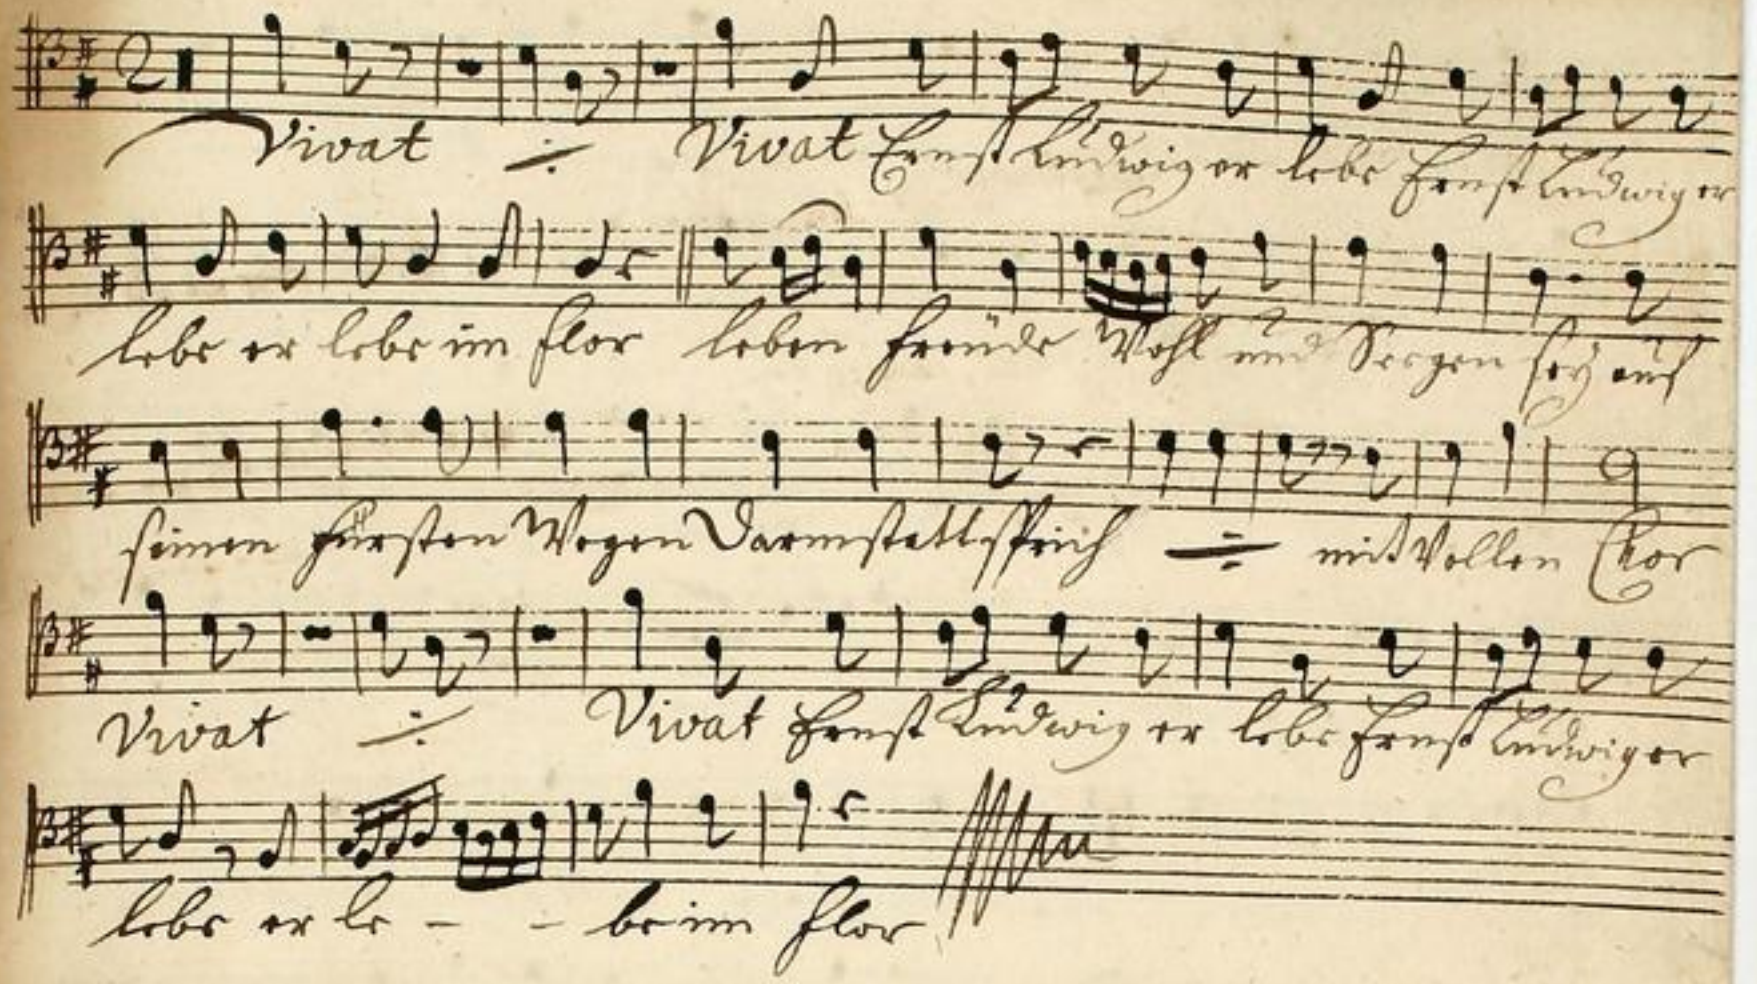 Vivat ·/· Vivat Ernst Ludwig er lebe Ernst Ludwig er
lebe er lebe im Flor leben Freüde Wohl und Seegen seÿ auf
seinen Fürsten Wegen Darmstatt sprich ·/· mit Vollen Chor
Vivat ·/· Vivat Ernst Ludwig er lebe Ernst Ludwig er
lebe er le - - be im Flor